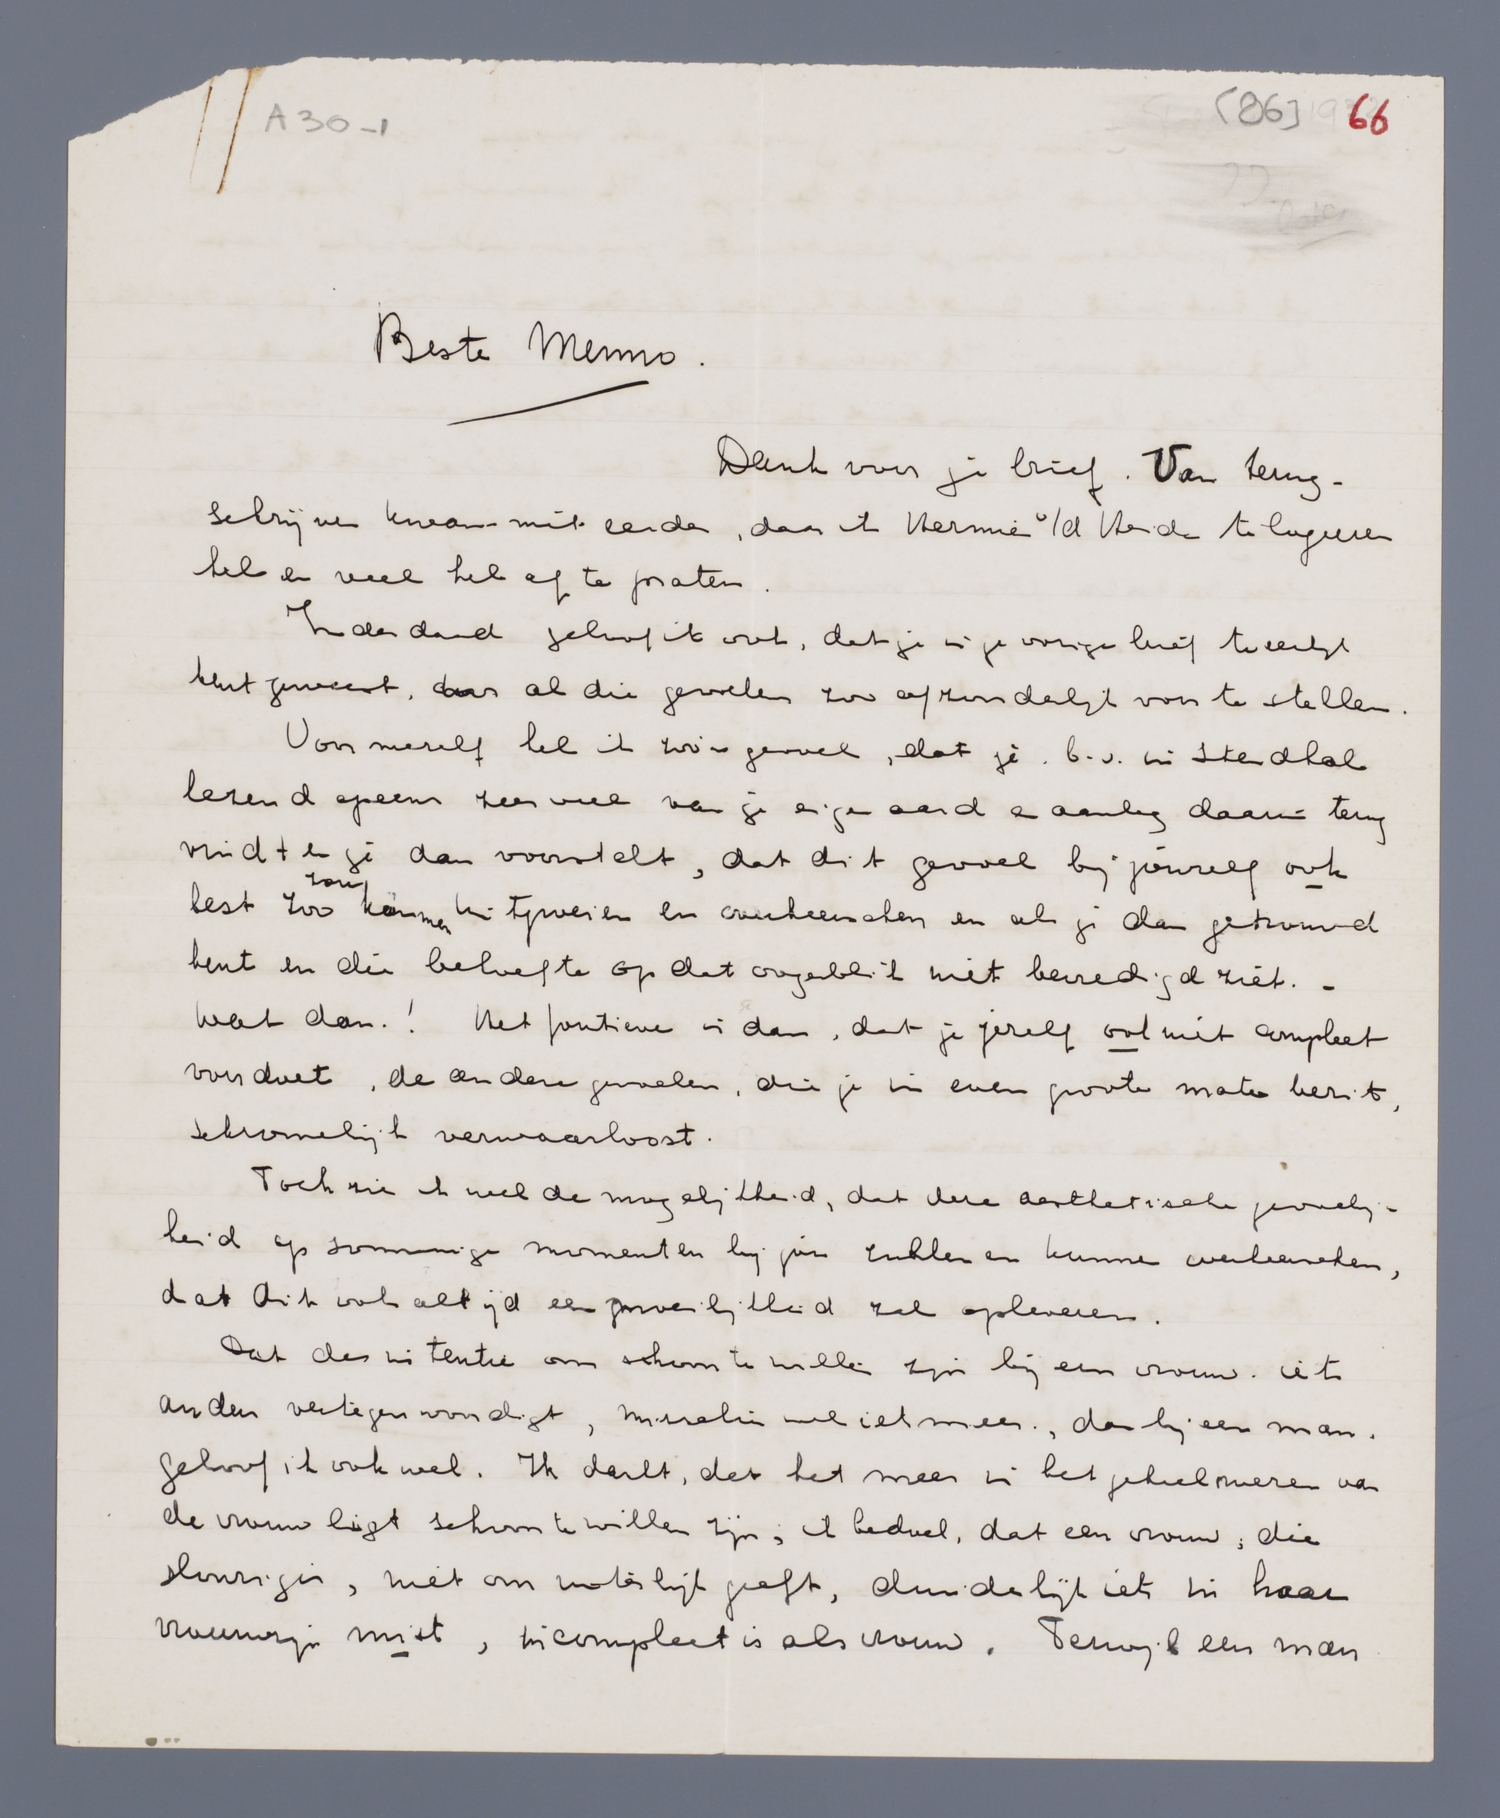 A30-1
[86] 66
Beste Menno.
Dank voor je brief. Van terug-
schrijven kwam niet eerder, daar ik Hermien v/d Heide te logeeren
heb en veel heb af te praten.
Inderdaad geloof ik ook, dat je in je vorige brief te eerlijk
bent geweest, door al die gevoelens zoo afzonderlijk voor te stellen.
Voor mezelf heb ik zoo'n gevoel, dat je b.v. in Stendhal
lezend opeens zeer veel van je eigen aard en aanleg daarin terug
vindt en je dan voorstelt, dat dit gevoel bij jouzelf ook
best zoo zou kunnen uitgroeien en overheerschen en als je dan getrouwd
bent en die behoefte op dat oogenblik niet bevredigd ziet. -
Wat dan.! Het foutieve is dan, dat je jezelf ook niet compleet
voordoet, de andere gevoelens, die je in even groote mate bezit,
schromelijk verwaarloost.
Toch zie ik wel de mogelijkheid, dat deze aesthetische gevoelig-
heid op sommige momenten bij jou zullen en kunnen overheerschen,
dat dit ook altijd een moeilijkheid zal opleveren.
Dat de intentie om schoon te willen zijn bij een vrouw iets
anders vertegenwoordigt, misschien wel iets meer, dan bij een man.
geloof ik ook wel. Ik denk, dat het meer in het geheele wezen van
de vrouw ligt schoon te willen zijn; ik bedoel, dat een vrouw, die
slonzig is, niet om uiterlijk geeft, duidelijk iets in haar
vrouwzijn mist, incompleet is als vrouw. Terwijl een man